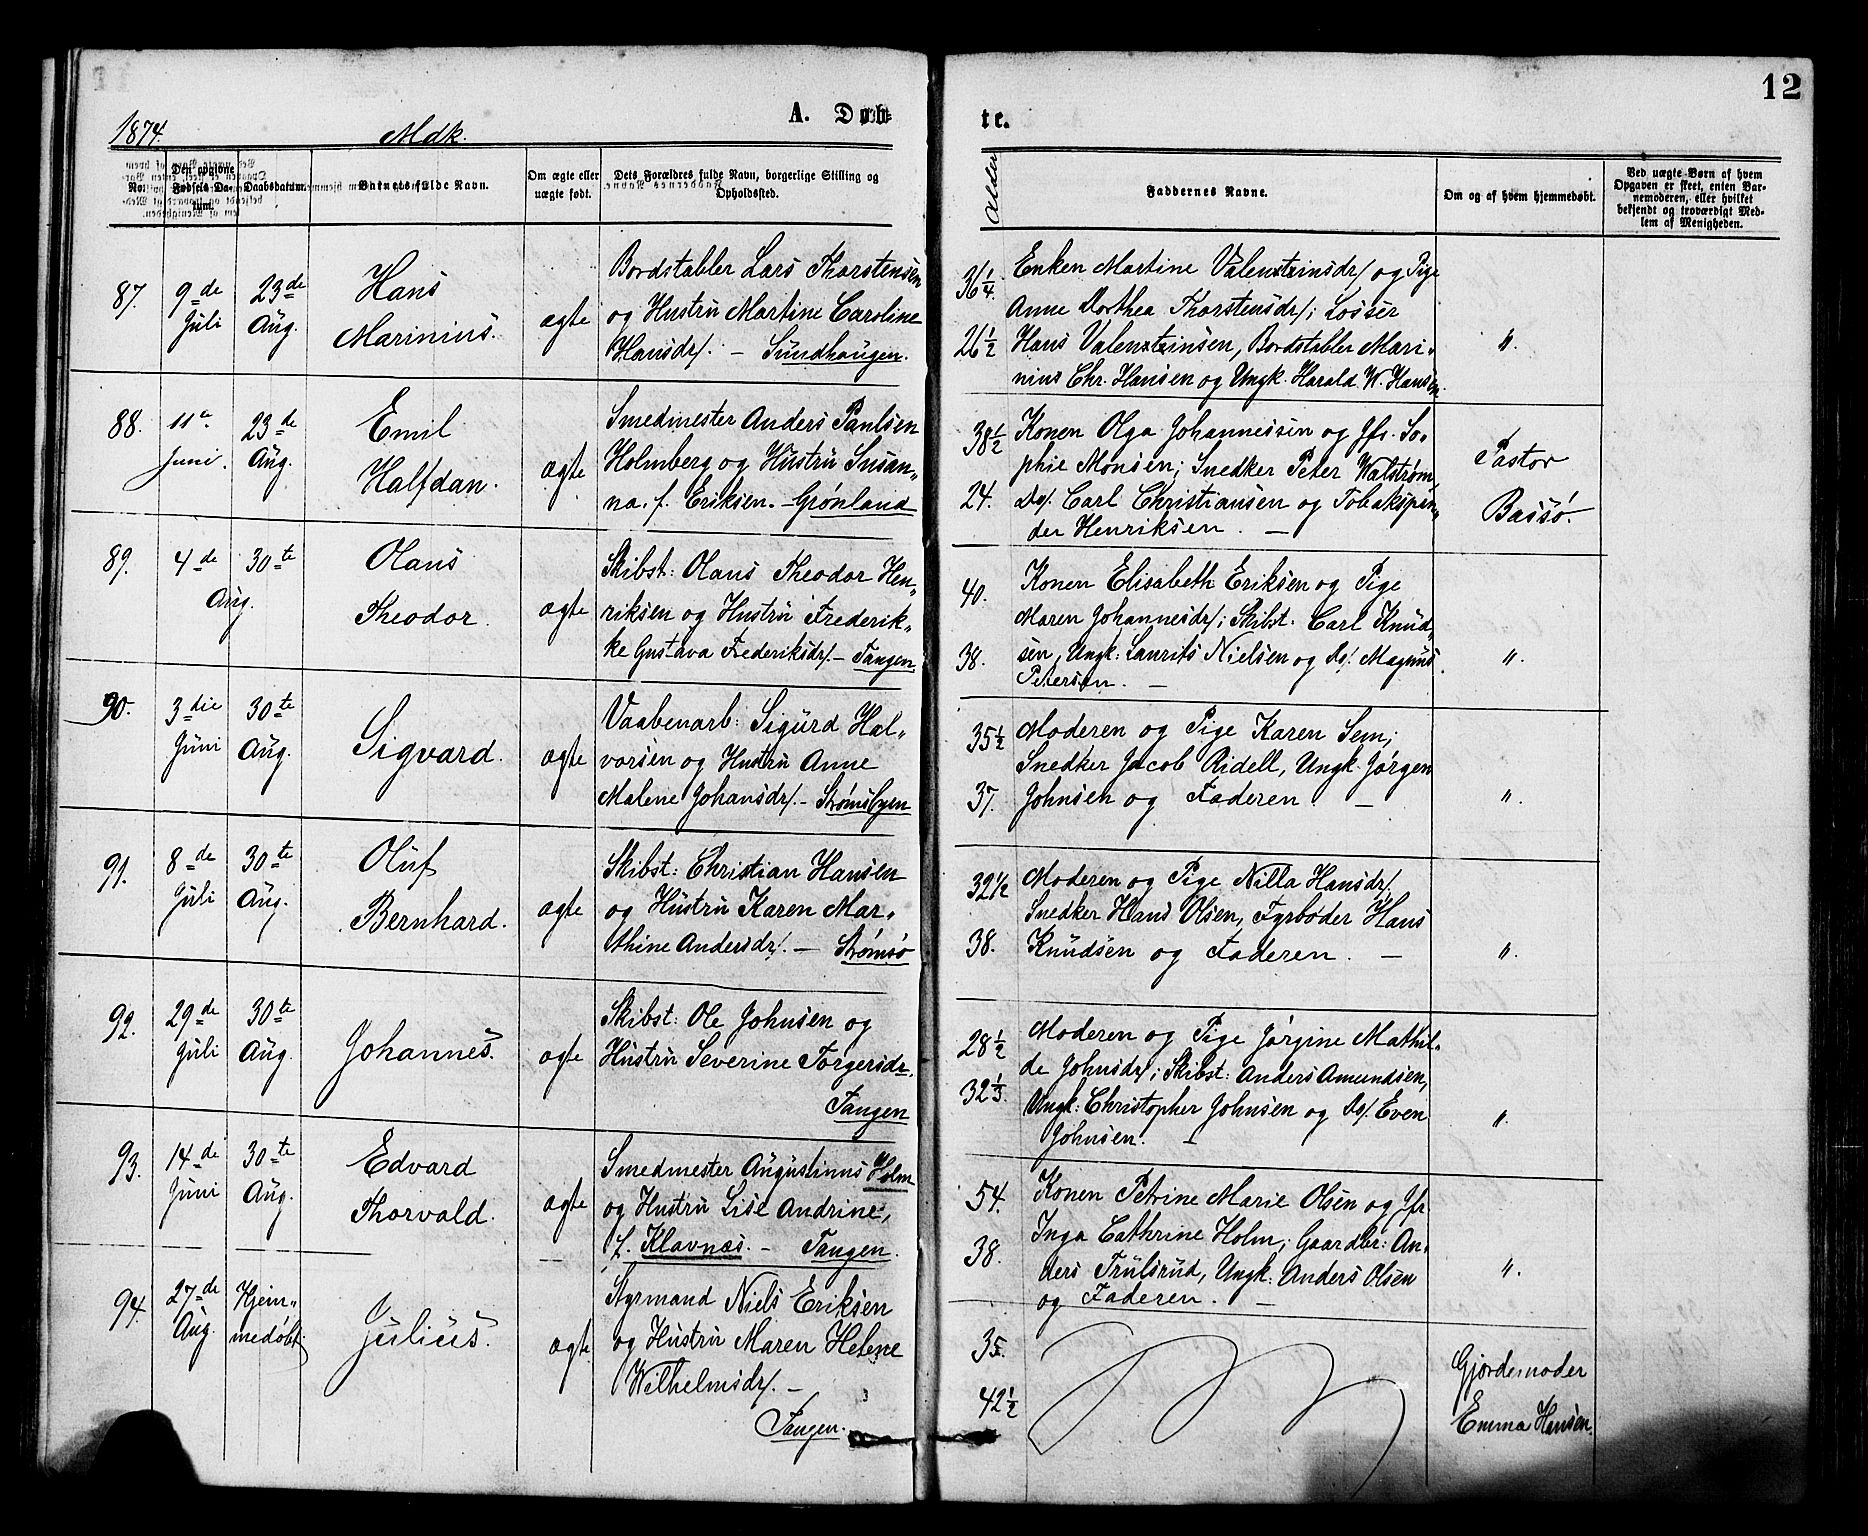 12
1874.
Mdk.
A. Døb-
te.
No.
Den opgivne
Fødsels Da-
tum.
Daabsdatum.
Barnets fulde Navn.
Om ægte eller
uægte født.
Dets Forældres fulde Navn, borgerlige Stilling og
Opholdssted.
Alder
Faddernes Navne.
Om og af hvem hjemmedøbt.
Ved uægte Børn af hvem
Opgaven er skeet, enten Bar-
nemoderen, eller hvilket
bekjendt og troværdigt Med-
lem af Menigheden.
87. 9de Juli
23de Aug.
Hans
Marinius.
ægte
Bordstabler Lars Thorstensen
og Hustru Martine Caroline
Hansdr/. - Sundhaugen.
36 1/4.
26 1/2
Enken Martine Valentinsdr/ og Pige
Anne Dorthea Thorstensdr/; Losser
Hans Valentinsen, Bordstabler Mari-
nius Chr. Hansen og Ungk. Harald W. Hansen.
"
88. 11te Juni.
23de Aug.
Emil
Halfdan.
ægte
Smedmester Anders Paulsen
Holmberg og Hustru Susan-
na, f. Eriksen. - Grønland
38 1/2
24.
Konen Olga Johannessen og Jfr. So-
phie Monsen; Snedker Peter Walstrøm,
Do/. Carl Christiansen og Tobakspin-
der Henriksen. -
Pastor
Bassø.
89. 4de Aug.
30te
Olaus
Theodor.
ægte
Skibst: Olaus Theodor Hen-
riksen og Hustru Frederik-
ke Gustava Frederiksdr/. - Tangen.
40.
38.
Konen Elisabeth Eriksen og Pige
Maren Johannesdr/; Skibst. Carl Knud-
sen, Ungk: Laurits Nielsen og Do/. Magnus
Petersen. -
"
90. 3die Juni
30te Aug.
Sigvard.
ægte
Vaabenarb: Sigurd Hal-
vorsen og Hustru Anne
Malene Johansdr/. - Strømsbyen
35 1/2
37.
Moderen og Pige Karen Sem;
Snedker Jacob Ridell, Ungk. Jørgen
Johnsen og Faderen -
"
91. 8de Juli
30te Aug.
Oluf
Bernhard.
ægte
Skibst: Christian Hansen
og Hustru Karen Mar-
thine Andersdr/. - Strømsø
32 1/2
38.
Moderen og Pige Nilla Hansdr/,
Snedker Hans Olsen, Fyrbøder Hans
Knudsen og Faderen. -
"
92. 29de Juli
30te Aug.
Johannes.
ægte
Skibst: Ole Johnsen og
Hustru Severine Torgersdr.
Tangen
28 1/2
32 1/3.
Moderen og Pige Jørgine Mathil-
de Johnsdr/; Skibst: Anders Amundsen,
Ungk: Christopher Johnsen og Do/. Even
Johnsen. -
"
93. 14de Juni
30te Aug.
Edvard
Thorvald.
ægte
Smedmester Augustinus Holm
og Hustru Lise Andrine,
f. Klavnæs. - Tangen.
54.
38.
Konen Petrine Marie Olsen og Jfr
Inga Cathrine Holm; Gaardbr: An-
ders Trulsrud, Ungk: Anders Olsen
og Faderen. -
"
94. 27de Aug.
Hjem-
medøbt.
Julius.
ægte
Styrmand Niels Eriksen
og Hustru Maren Helene
Wilhelmsdr/. -
Tangen.
35.
42 1/2
Gjordemoder
Emma Hansen.